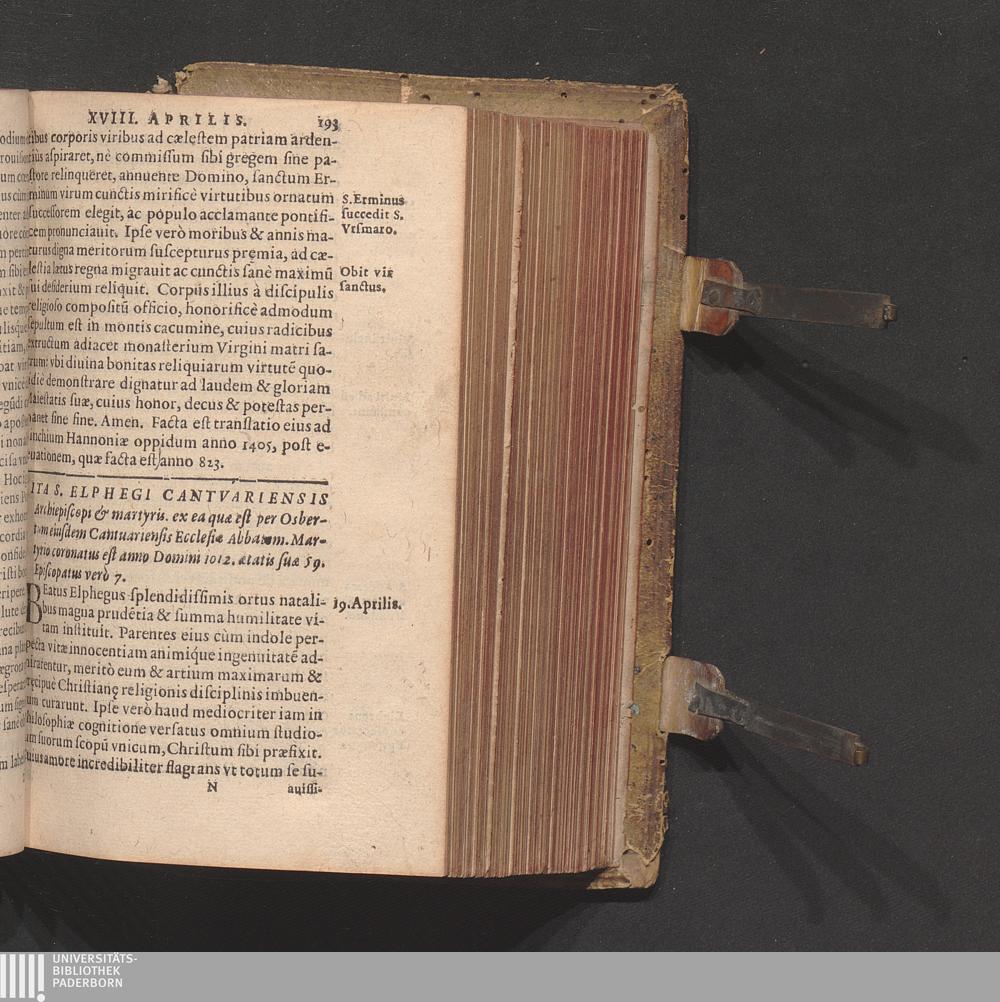 XVIII. APRILIS. 193
tibus corporis viribus ad cælestem patriam arden-
tiùs aspiraret, nè commissum sibi gregem sine pa-
store relinqueret, annuente Domino, sanctum Er-
minum virum cunctis mirificè virtutibus ornatum
successorem elegit, ac populo acclamante pontifi-
cem pronunciauit. Ipse verò moribus & annis ma-
turus digna meritorum suscepturus premia, ad cæ-
lestia lætus regna migrauit ac cunctis sanè maximū
sui desiderium reliquit. Corpus illius à discipulis
religioso compositū officio, honorificè admodum
sepultum est in montis cacumine, cuius radicibus
extructum adiacet monasterium Virgini matri sa-
crum: vbi diuina bonitas reliquiarum virtutē quo-
idiè demonstrare dignatur ad laudem & gloriam
Maiestatis suæ, cuius honor, decus & potestas per-
manet sine fine. Amen. Facta est translatio eius ad
inchium Hannoniæ oppidum anno 1405, post e-
euationem, quæ facta est anno 823.
S. Erminus
succedit S.
Vrsmaro.
Obit vir
sanctus.
ITA S. ELPHEGI CANTVARIENSIS
Archiepiscopi & martyris. ex ea quæ est per Osber-
tum eiusdem Cantuariensis Ecclesiæ Abbatem. Mar-
tyrio coronatus est anno Domini 1012. ætatis suæ 59.
Episcopatus verò 7.
BEatus Elphegus splendidissimis ortus natali-
bus magna prudētia & summa humilitate vi-
tam instituit. Parentes eius cùm indole per-
pecta vitæ innocentiam animique ingenuitatē ad-
mirarentur, meritò eum & artium maximarum &
præcipuè Christianę religionis disciplinis imbuen-
dum curarunt. Ipse verò haud mediocriter iam in
Philosophiæ cognitione versatus omnium studio-
rum suorum scopū vnicum, Christum sibi præfixit.
cuius amore incredibiliter flagrans vt totum se su-
19. Aprilis.
N auissi-
UNIVERSITÄTS-
BIBLIOTHEK
PADERBORN